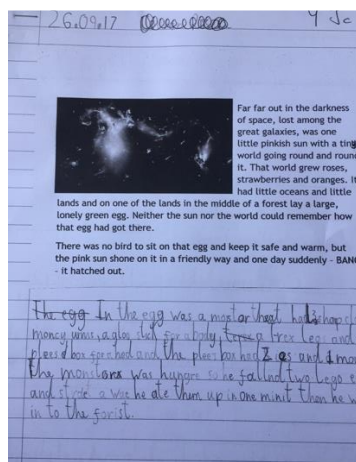 26.09.17
Far far out in the darkness
of space, lost among the
great galaxies, was one
little pinkish sun with a tiny
world going round and round
it. That world grew roses,
strawberries and oranges. It
had little oceans and little
lands and on one of the lands in the middle of a forest lay a large,
lonely green egg. Neither the sun nor the world could remember how
that egg had got there.
There was no bird to sit on that egg and keep it safe and warm, but
the pink sun shone on it in a friendly way and one day suddenly - BANG
- it hatched out.
The egg In the egg was a
a glow stick for a body, a tree legs and
box for a hed and the box had 2 and 1
the was so he two Lego
and a he ate them up in one minit then he
in to the forist.